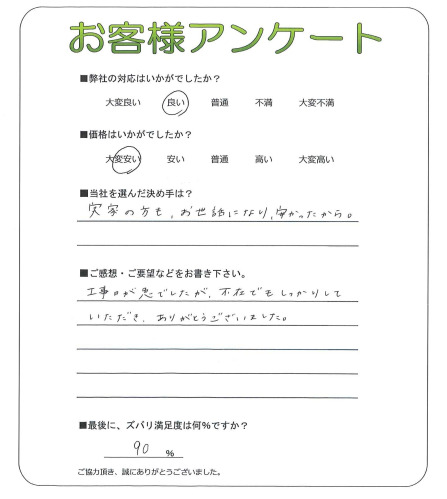 お客様アンケート
■弊社の対応はいかがでしたか?
大変良い 良い 普通 不満 大変不満
■価格はいかがでしたか?
大変安い 安い 普通 高い 大変高い
■当社を選んだ決め手は?
実家の方も、お世話になり、安かったから。
■ご感想・ご要望などをお書き下さい。
工事日が急でしたが、不在でもしっかりして
いただき、ありがとうございました。
■最後に、ズバリ満足度は何%ですか?
90 %
ご協力頂き、誠にありがとうございました。